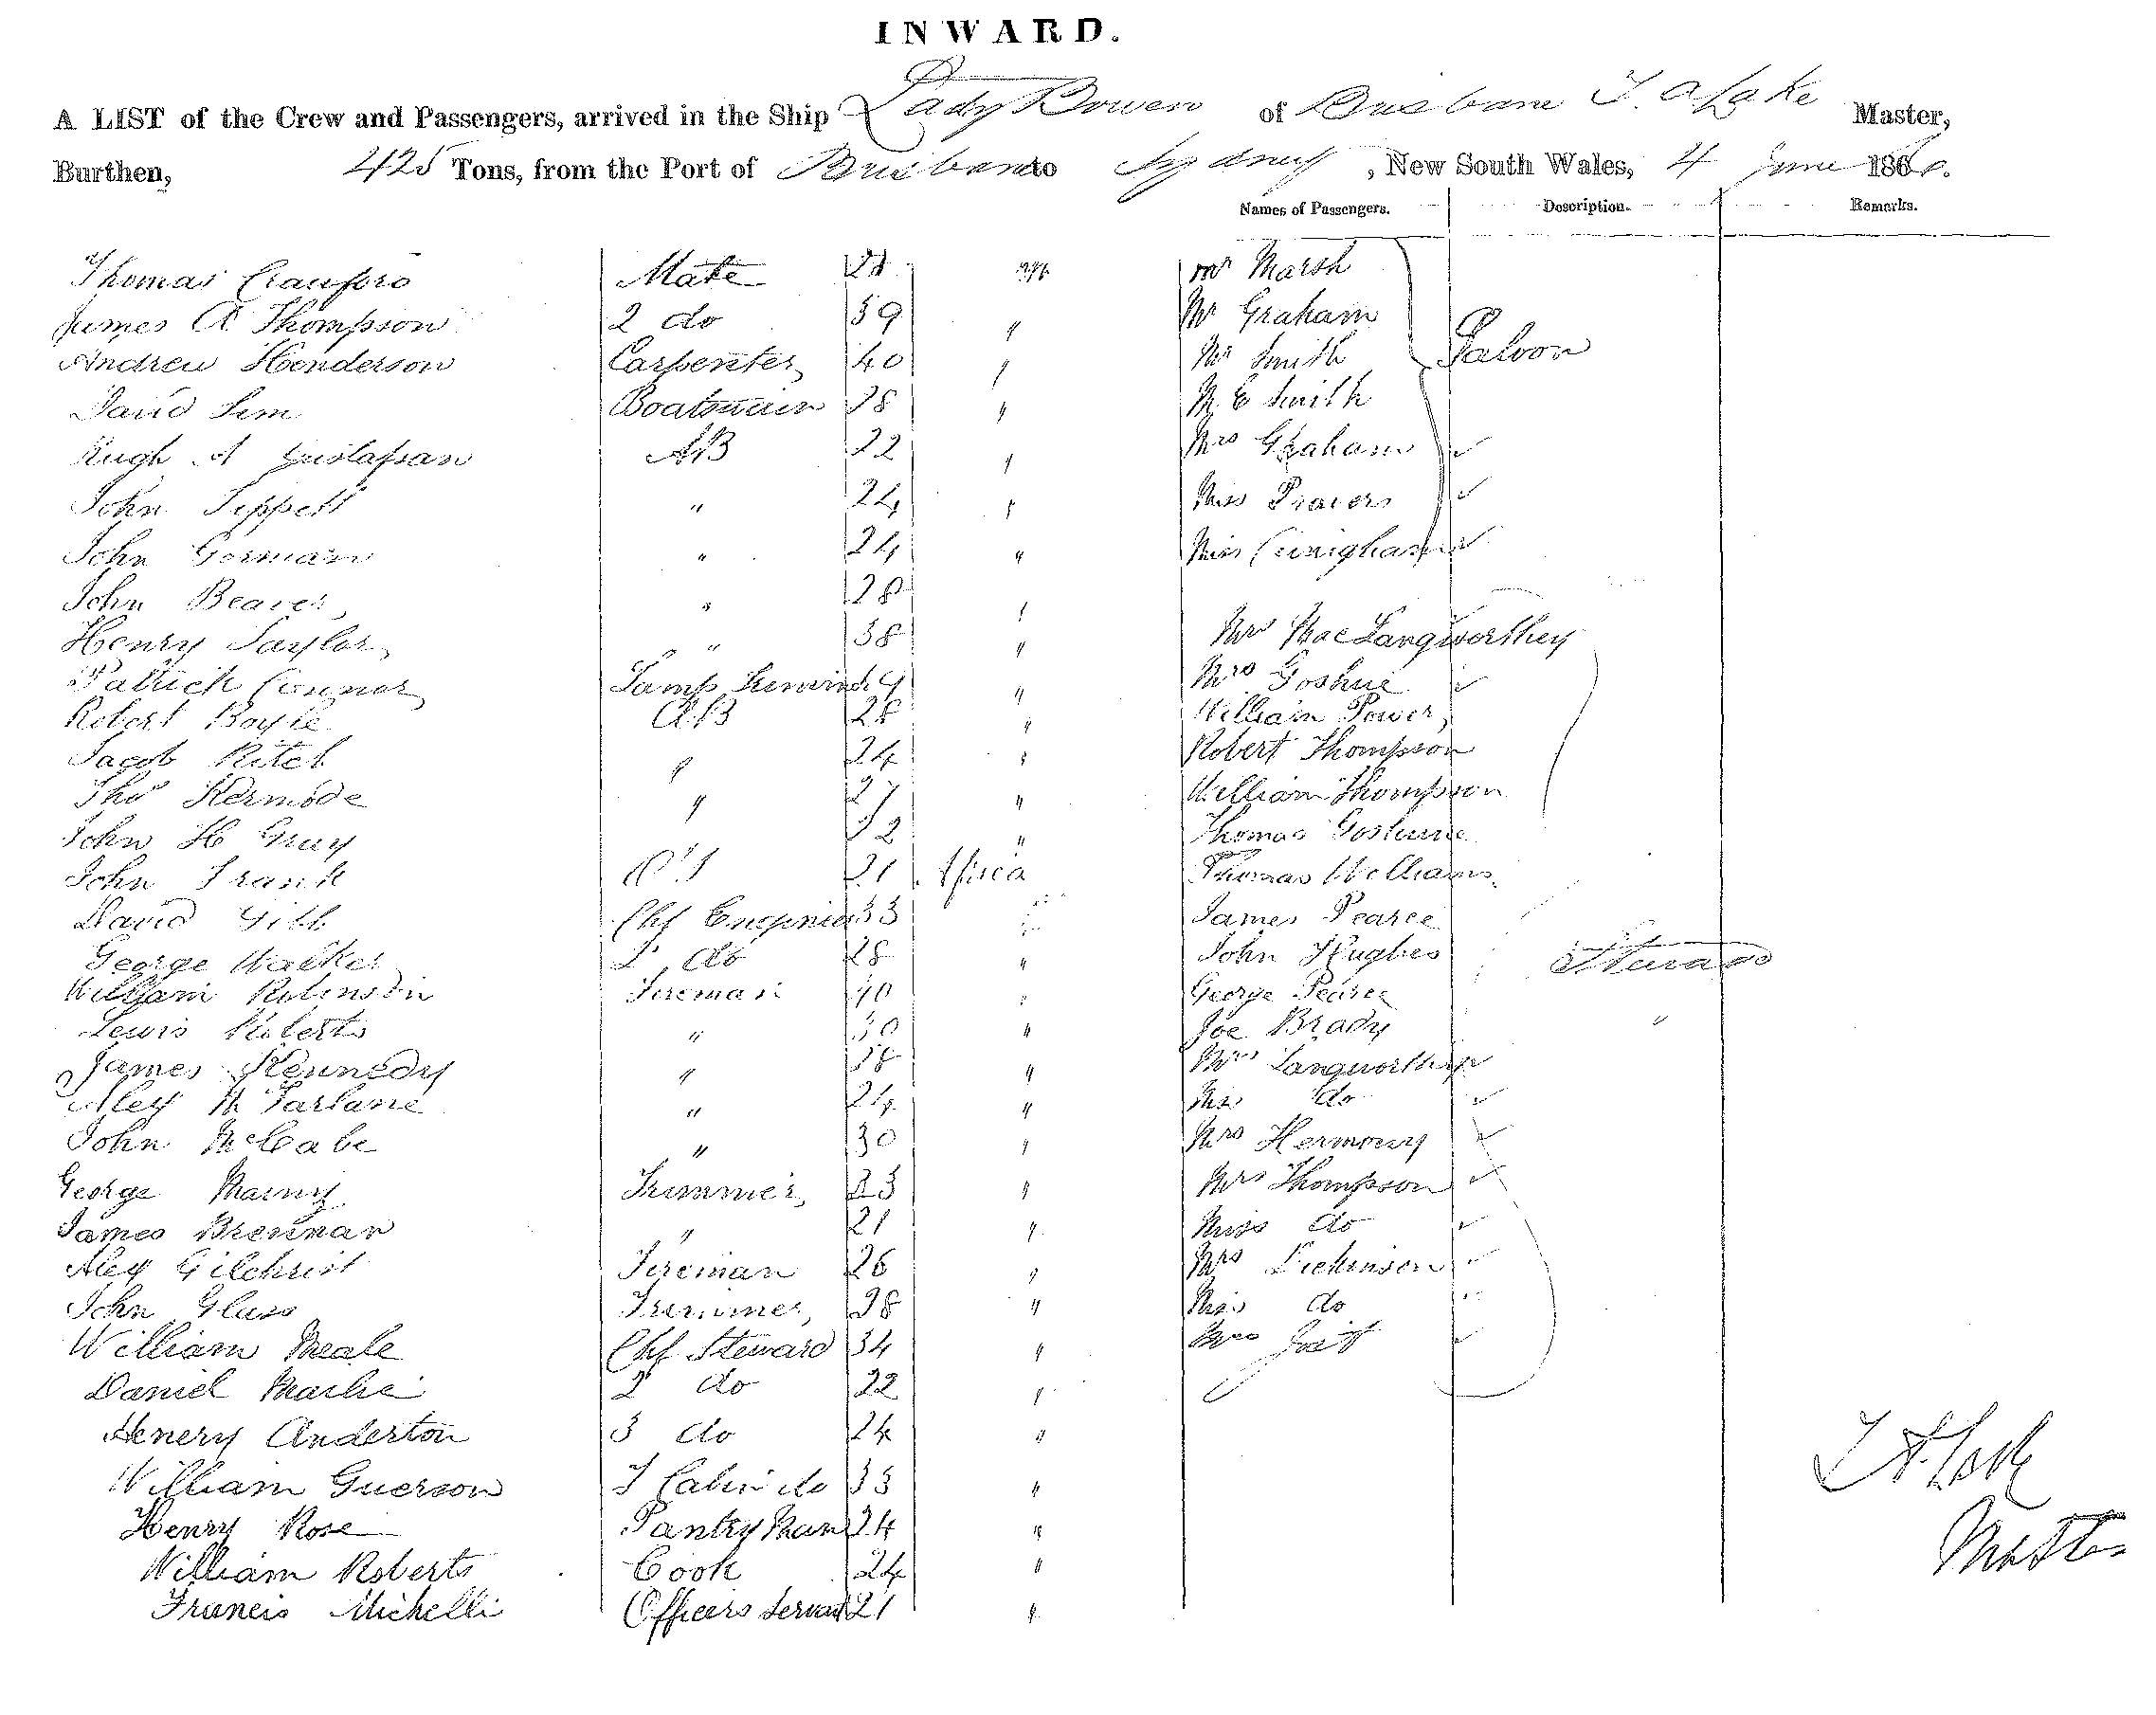 INWARD.
A LIST of the Crew and Passengers, arrived in the Ship Lady Bowen of Brisbane T. A Lake Master,
Burthen, 425 Tons, from the Port of Brisbane to Sydney, New South Wales, 4 June 186
Names of Passengers. Description. Remarks.
Thomas Crauford Mate Mr Marsh
James A Thompson 2 do 39 " Mr Graham
Andrew Henderson Carpenter 40 " Mr Smith Saloon
David Sim Boatswain 28 " M E Smith
Hugh A 22 " Mrs Graham
John Tippett " 24 " Miss Travers
John Gorman " 24 " Miss Cuningham
John Beaver " 28 "
Henry Taylor " 38 " MacLangworthey
Patrick Connor Lamp " Mrs Goshue
Robert Boyle AB 28 " William Power
Jacob Ritch " 24 " Robert Thompson
Thos Kermode " " William Thompson
John H Gray " Thomas
John Frank OS 21 Africa Thomas Williams
David Gibb Chf 33 James Pearce
George Walker 2 do 28 " John Hughes
William Robinson Fireman 40 " George Pearce
Lewis Roberts " 30 " Joe Brady
James Kennedy " " Mrs Langworthy
Alex McFarlane " 24 " do
John McCabe " 30 " Mrs Hermony
George Trimmer 23 " Mrs Thompson
James Brennan " 21 " Miss do
Alex Gilchrist Fireman 26 " Mrs Dickinson
John Glass Trimmer 28 " Miss do
William Meale Chf Steward 34 " Mrs
Daniel 2 do 22 "
Henery Anderton 3 do 24 "
William Guerson F Cabin do 33 "
Henry Rose Pantry Man 24 "
William Roberts Cook 24 "
Francis Michelli Officers Servant 21 "
T A Lake
Master